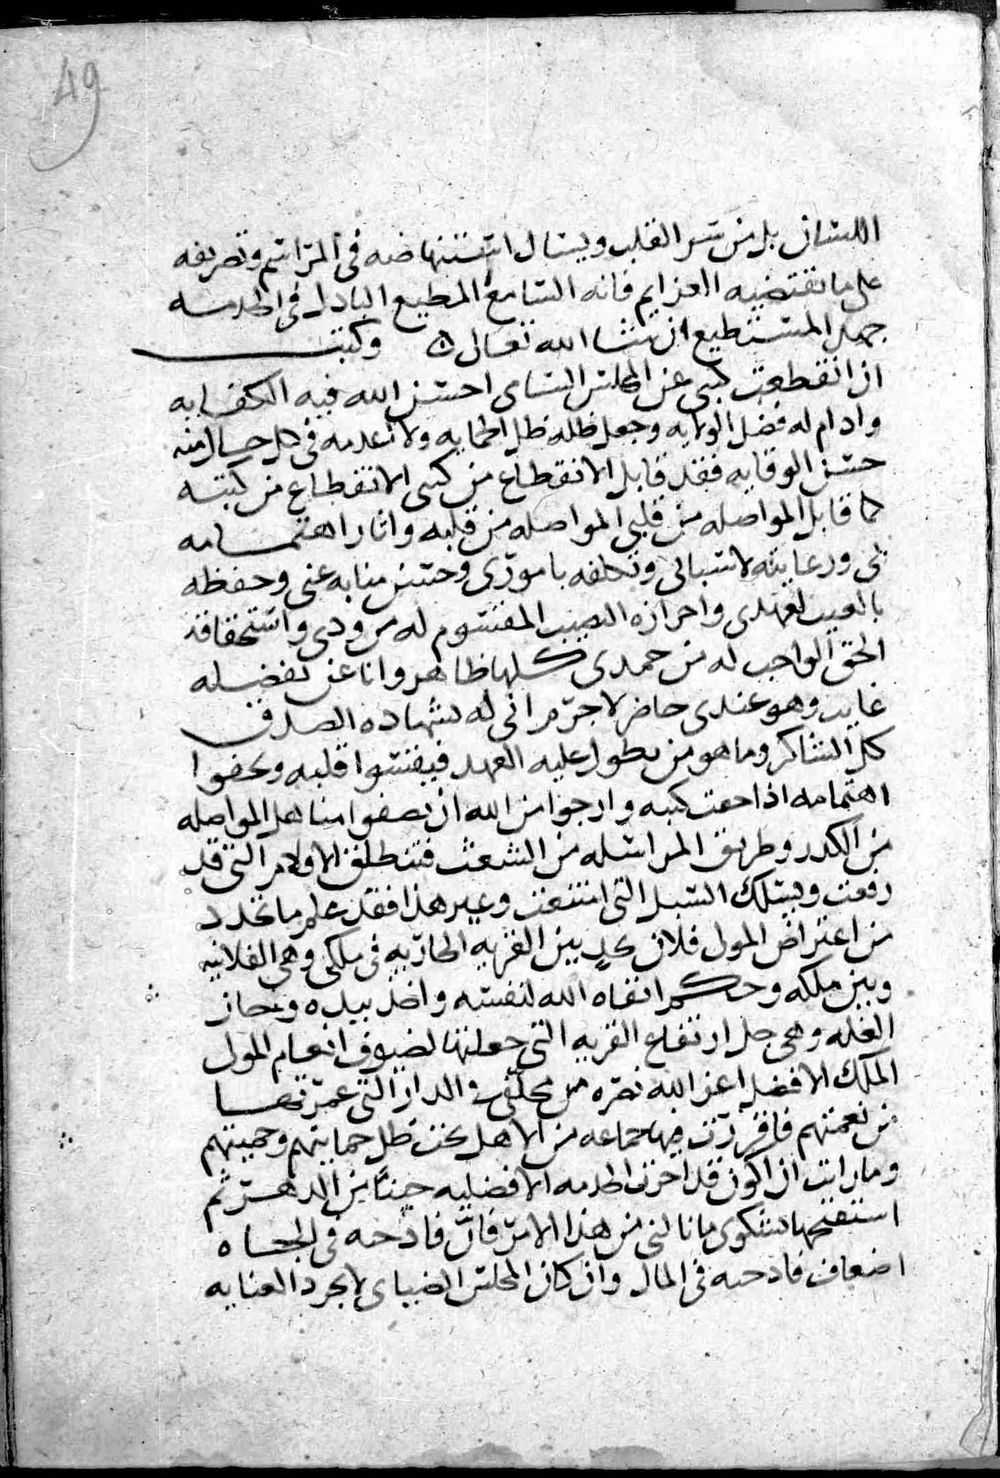 49
اللسان بل من سر القلب ويسال استنهاضه فى المراسم وتصريفه
على ما تقتضيه العزايم فانه السامع المطيع الباذل فى الخدمه
جهد المستطيع ان شا الله تعالى ه وكتب
ان انقطعت كتبى عن المجلس السامى احسن الله فيه الكفايه
وادام له فضل الولايه وجعل ظله ظل الحمايه ولا اعدمه فى كل حال منه
حسن الوقايه فقد قابل الانقطاع من كتبى الانقطاع من كتبه
كما قابل المواصله من قلبى المواصله من قلبه واثار اهتمامه
بى ورعايته لاسبابى وتكلفه بامورى وحسن منابه عنى وحفظه
بالغيب لعهدى واحرازه النصيب المقسوم له من ودى واستحقاقه
الحق الواجب له من حمدى كلها ظاهر وانا عن تفضله
غايب وهو عندى حاضر لا جرم انى له بشهاده الصدق
كل الشاكر وما هو من يطول عليه العهد فيقسوا قلبه ويجفوا
اهتمامه اذا جفت كتبه وارجوا من الله ان يصفوا مناهل المواصله
من الكدر وطريق المراسله من الشعث فتنطلق الاقلام التى قد
رفعت ويسلك السبل التى امتنعت وغير هذا فقد علم ما تجدد
من اعتراض المولى فلان بين القريه الجاريه فى ملكى وهى الفلانيه
وبين ملكه وحكم ابقاه الله لنفسه واخذ بيده وحاز
الغله وهى جل ارتفاع القريه التى جعلتها لضيوف انعام المولى
الملك الافضل اعز الله نصره من مخلفى الدار التى عمرتها
من نعمتهم فاقررت فيها جماعه من الاهل تحت ظل حمايتهم وحميتهم
وما رايت ان اكون قد اخرت الخدمه الافضليه حينا من الدهر ثم
استفتحها بشكوى ما نالنى من هذا الامر فان فادحه فى الجاه
اضعاف فادحه فى المال وان كان المجلس الضيايى لا يجرد العنايه